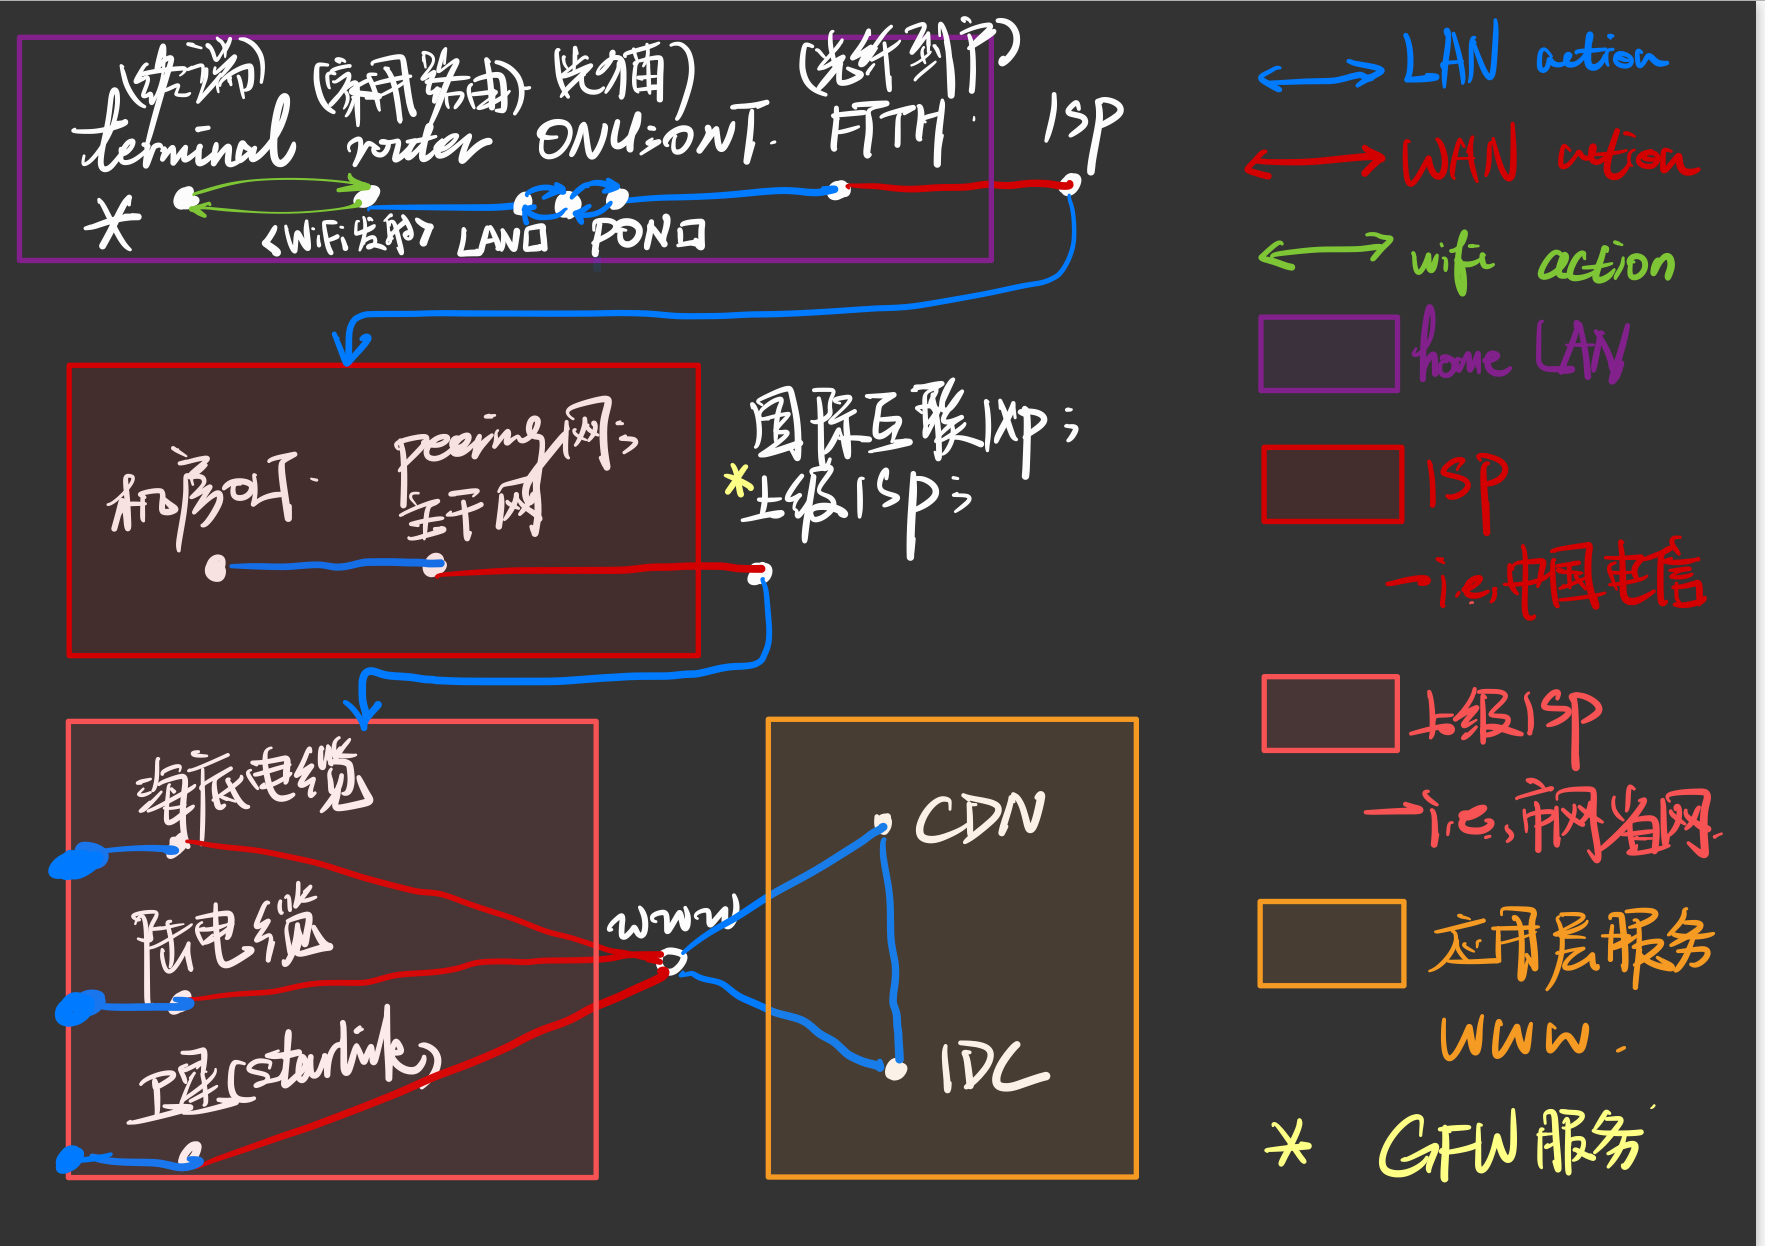 (终端) (家用路由) 光猫) (光纤到户)
terminal router ONU;ONT. FTTH. ISP
* <WiFi发射> LAN口 PON口
机房OLT. peering网;
主干网
国际互联IXP;
*上级ISP;
海底电缆
陆电缆
卫星(starlink)
www
CDN
IDC
LAN action
WAN action
wifi action
home LAN
ISP
→i.e,中国电信
上级ISP
→i.e,市网省网.
应用层服务
www.
* GFW服务